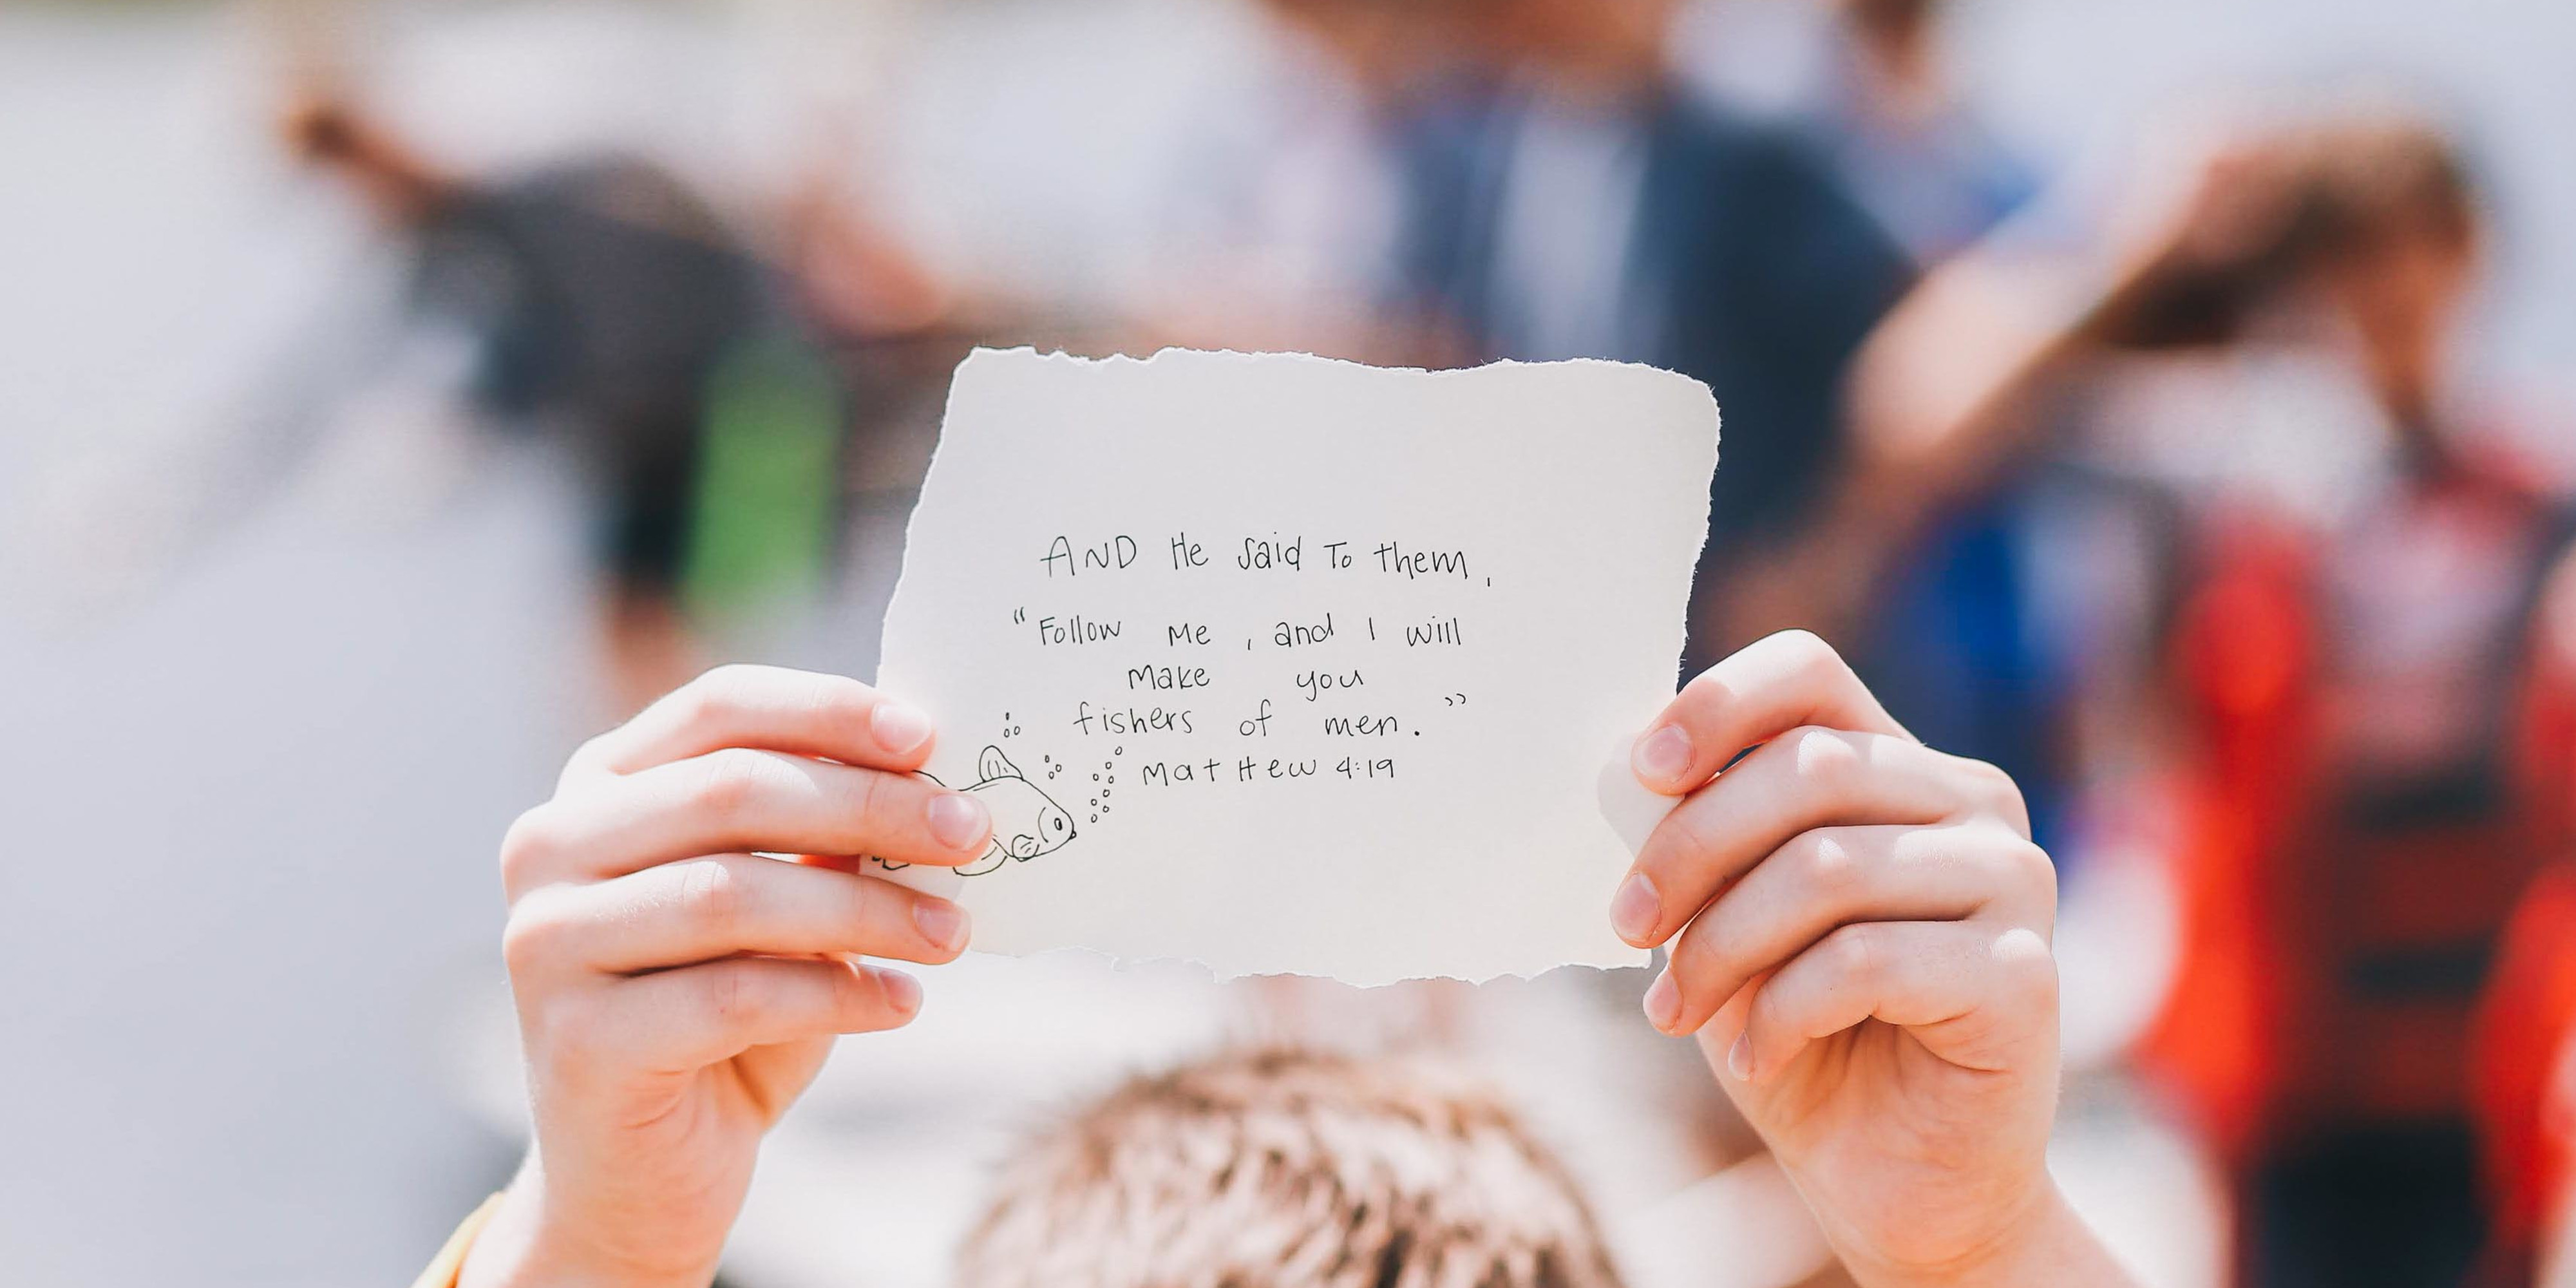 AND He said To them,
"Follow Me, and I will
Make you
fishers of men."
MatHew 4:19